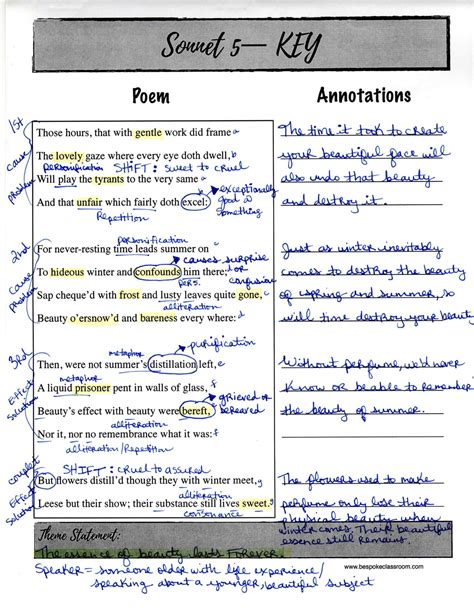 Sonnet 5— KEY
Poem
Annotations
1st
cause
problem
Those hours, that with gentle work did frame a
The lovely gaze where every eye doth dwell, b
personification SHIFT: sweet to cruel
Will play the tyrants to the very same a
And that unfair which fairly doth excel: b
Repetition
exceptionally
good @
something
The time it took to create
your beautiful face will
also undo that beauty
and destroy it.
2nd
Cause
Problem
personification
For never-resting time leads summer on c
causes surprise
or
confusion
To hideous winter and confounds him there; d
pers.
Sap cheque'd with frost and lusty leaves quite gone, c
alliteration
Beauty o'ersnow'd and bareness every where: d
Just as winter inevitably
comes to destroy the beauty
of spring and summer, so
will time destroy your beauty
3rd
Effect
Solution
metaphor
purification
Then, were not summer's distillation left, e
metaphor
A liquid prisoner pent in walls of glass, f
grieved or
bereaved
Beauty's effect with beauty were bereft, e
alliteration
Nor it, nor no remembrance what it was: f
alliteration/Repetition
Without perfume, we'd never
know or be able to remember
the beauty of summer.
couplet
Effect
Solution
SHIFT: cruel to assured
But flowers distill'd though they with winter meet, g
alliteration
Leese but their show; their substance still lives sweet. g
consonance
The flowers used to make
perfume only lose their
physical beauty when
winter comes. Their beautiful
essence still remains.
Theme Statement:
The essence of beauty lasts forever.
www.bespokeclassroom.com
Speaker = someone older with life experience/
speaking about a younger, beautiful subject